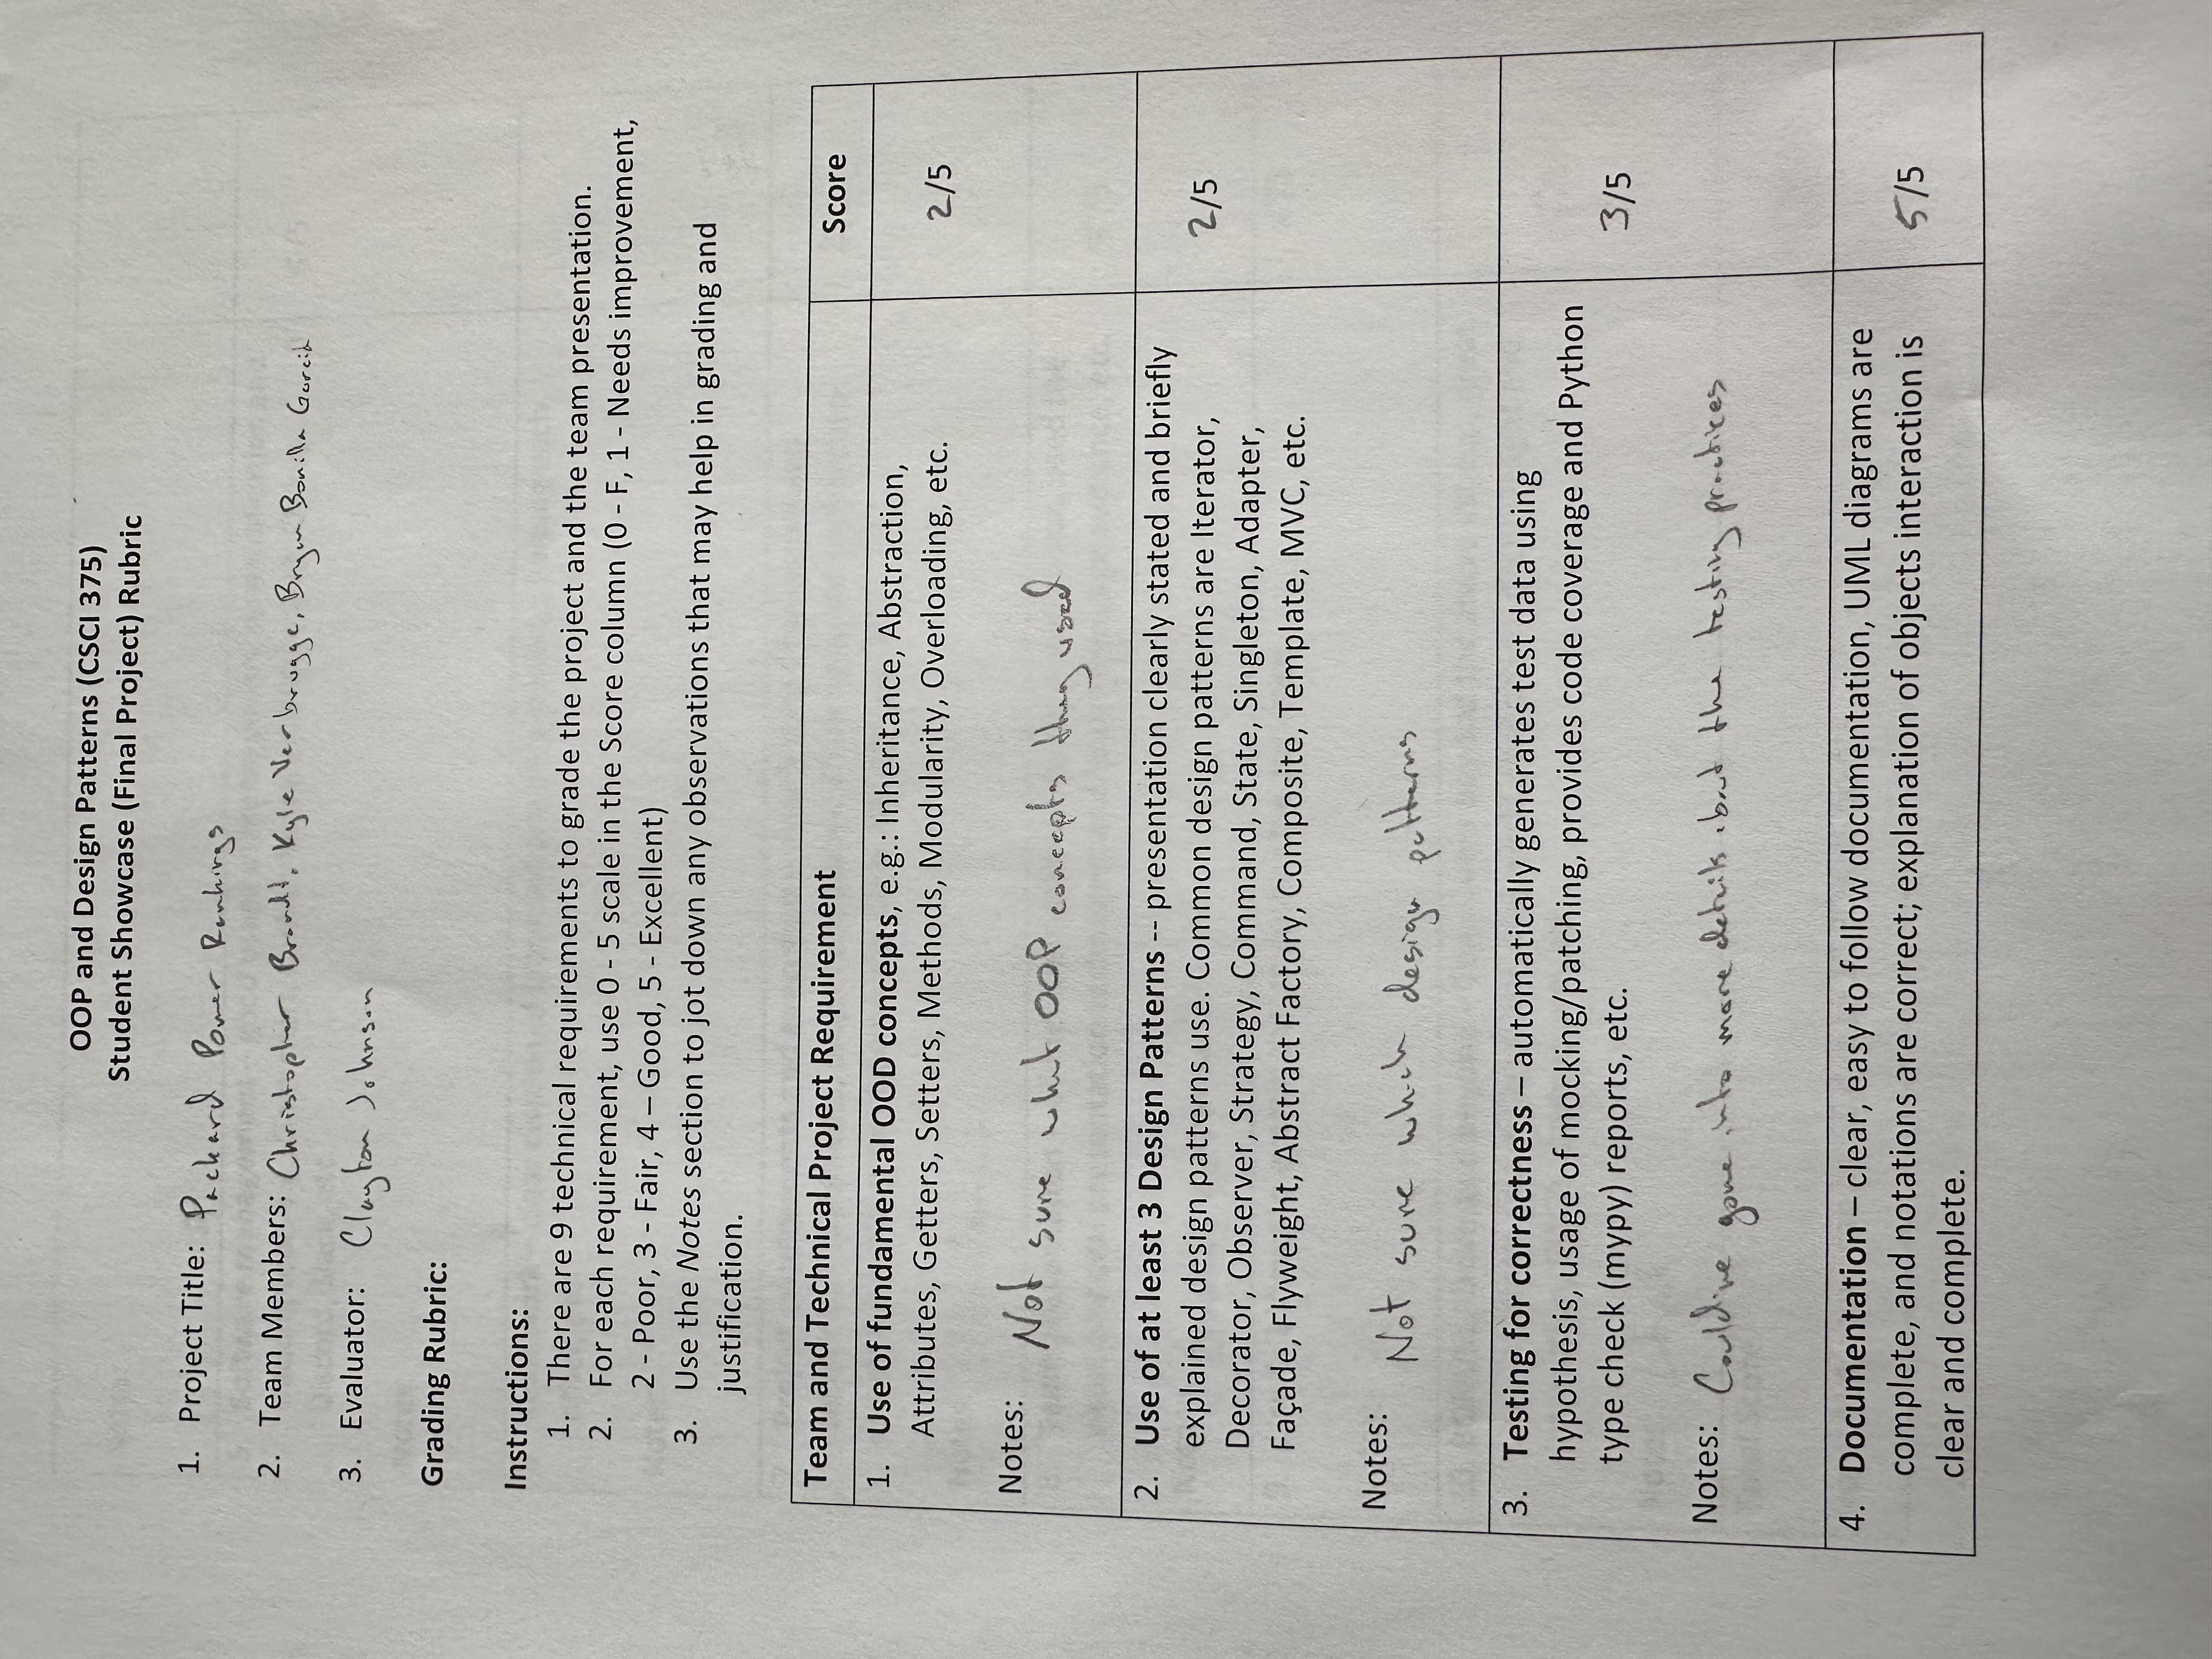 OOP and Design Patterns (CSCI 375)
Student Showcase (Final Project) Rubric
1. Project Title: Packard Power Rankings
2. Team Members: Christopher Brandt, Kyle Verbrugge, Bryan Bonilla Garcia
3. Evaluator: Clayton Johnson
Grading Rubric:
Instructions:
1. There are 9 technical requirements to grade the project and the team presentation.
2. For each requirement, use 0 - 5 scale in the Score column (0 - F, 1 - Needs improvement,
2 - Poor, 3 - Fair, 4 – Good, 5 - Excellent)
3. Use the Notes section to jot down any observations that may help in grading and
justification.
Team and Technical Project Requirement
Score
1. Use of fundamental OOD concepts, e.g.: Inheritance, Abstraction,
Attributes, Getters, Setters, Methods, Modularity, Overloading, etc.
2/5
Notes: Not sure what OOP concepts they used
2. Use of at least 3 Design Patterns -- presentation clearly stated and briefly
explained design patterns use. Common design patterns are Iterator,
2/5
Decorator, Observer, Strategy, Command, State, Singleton, Adapter,
Façade, Flyweight, Abstract Factory, Composite, Template, MVC, etc.
Notes: Not sure which design patterns
3. Testing for correctness – automatically generates test data using
hypothesis, usage of mocking/patching, provides code coverage and Python
type check (mypy) reports, etc.
3/5
Notes: Could've gone into more details about the testing practices
4. Documentation – clear, easy to follow documentation, UML diagrams are
complete, and notations are correct; explanation of objects interaction is
5/5
clear and complete.